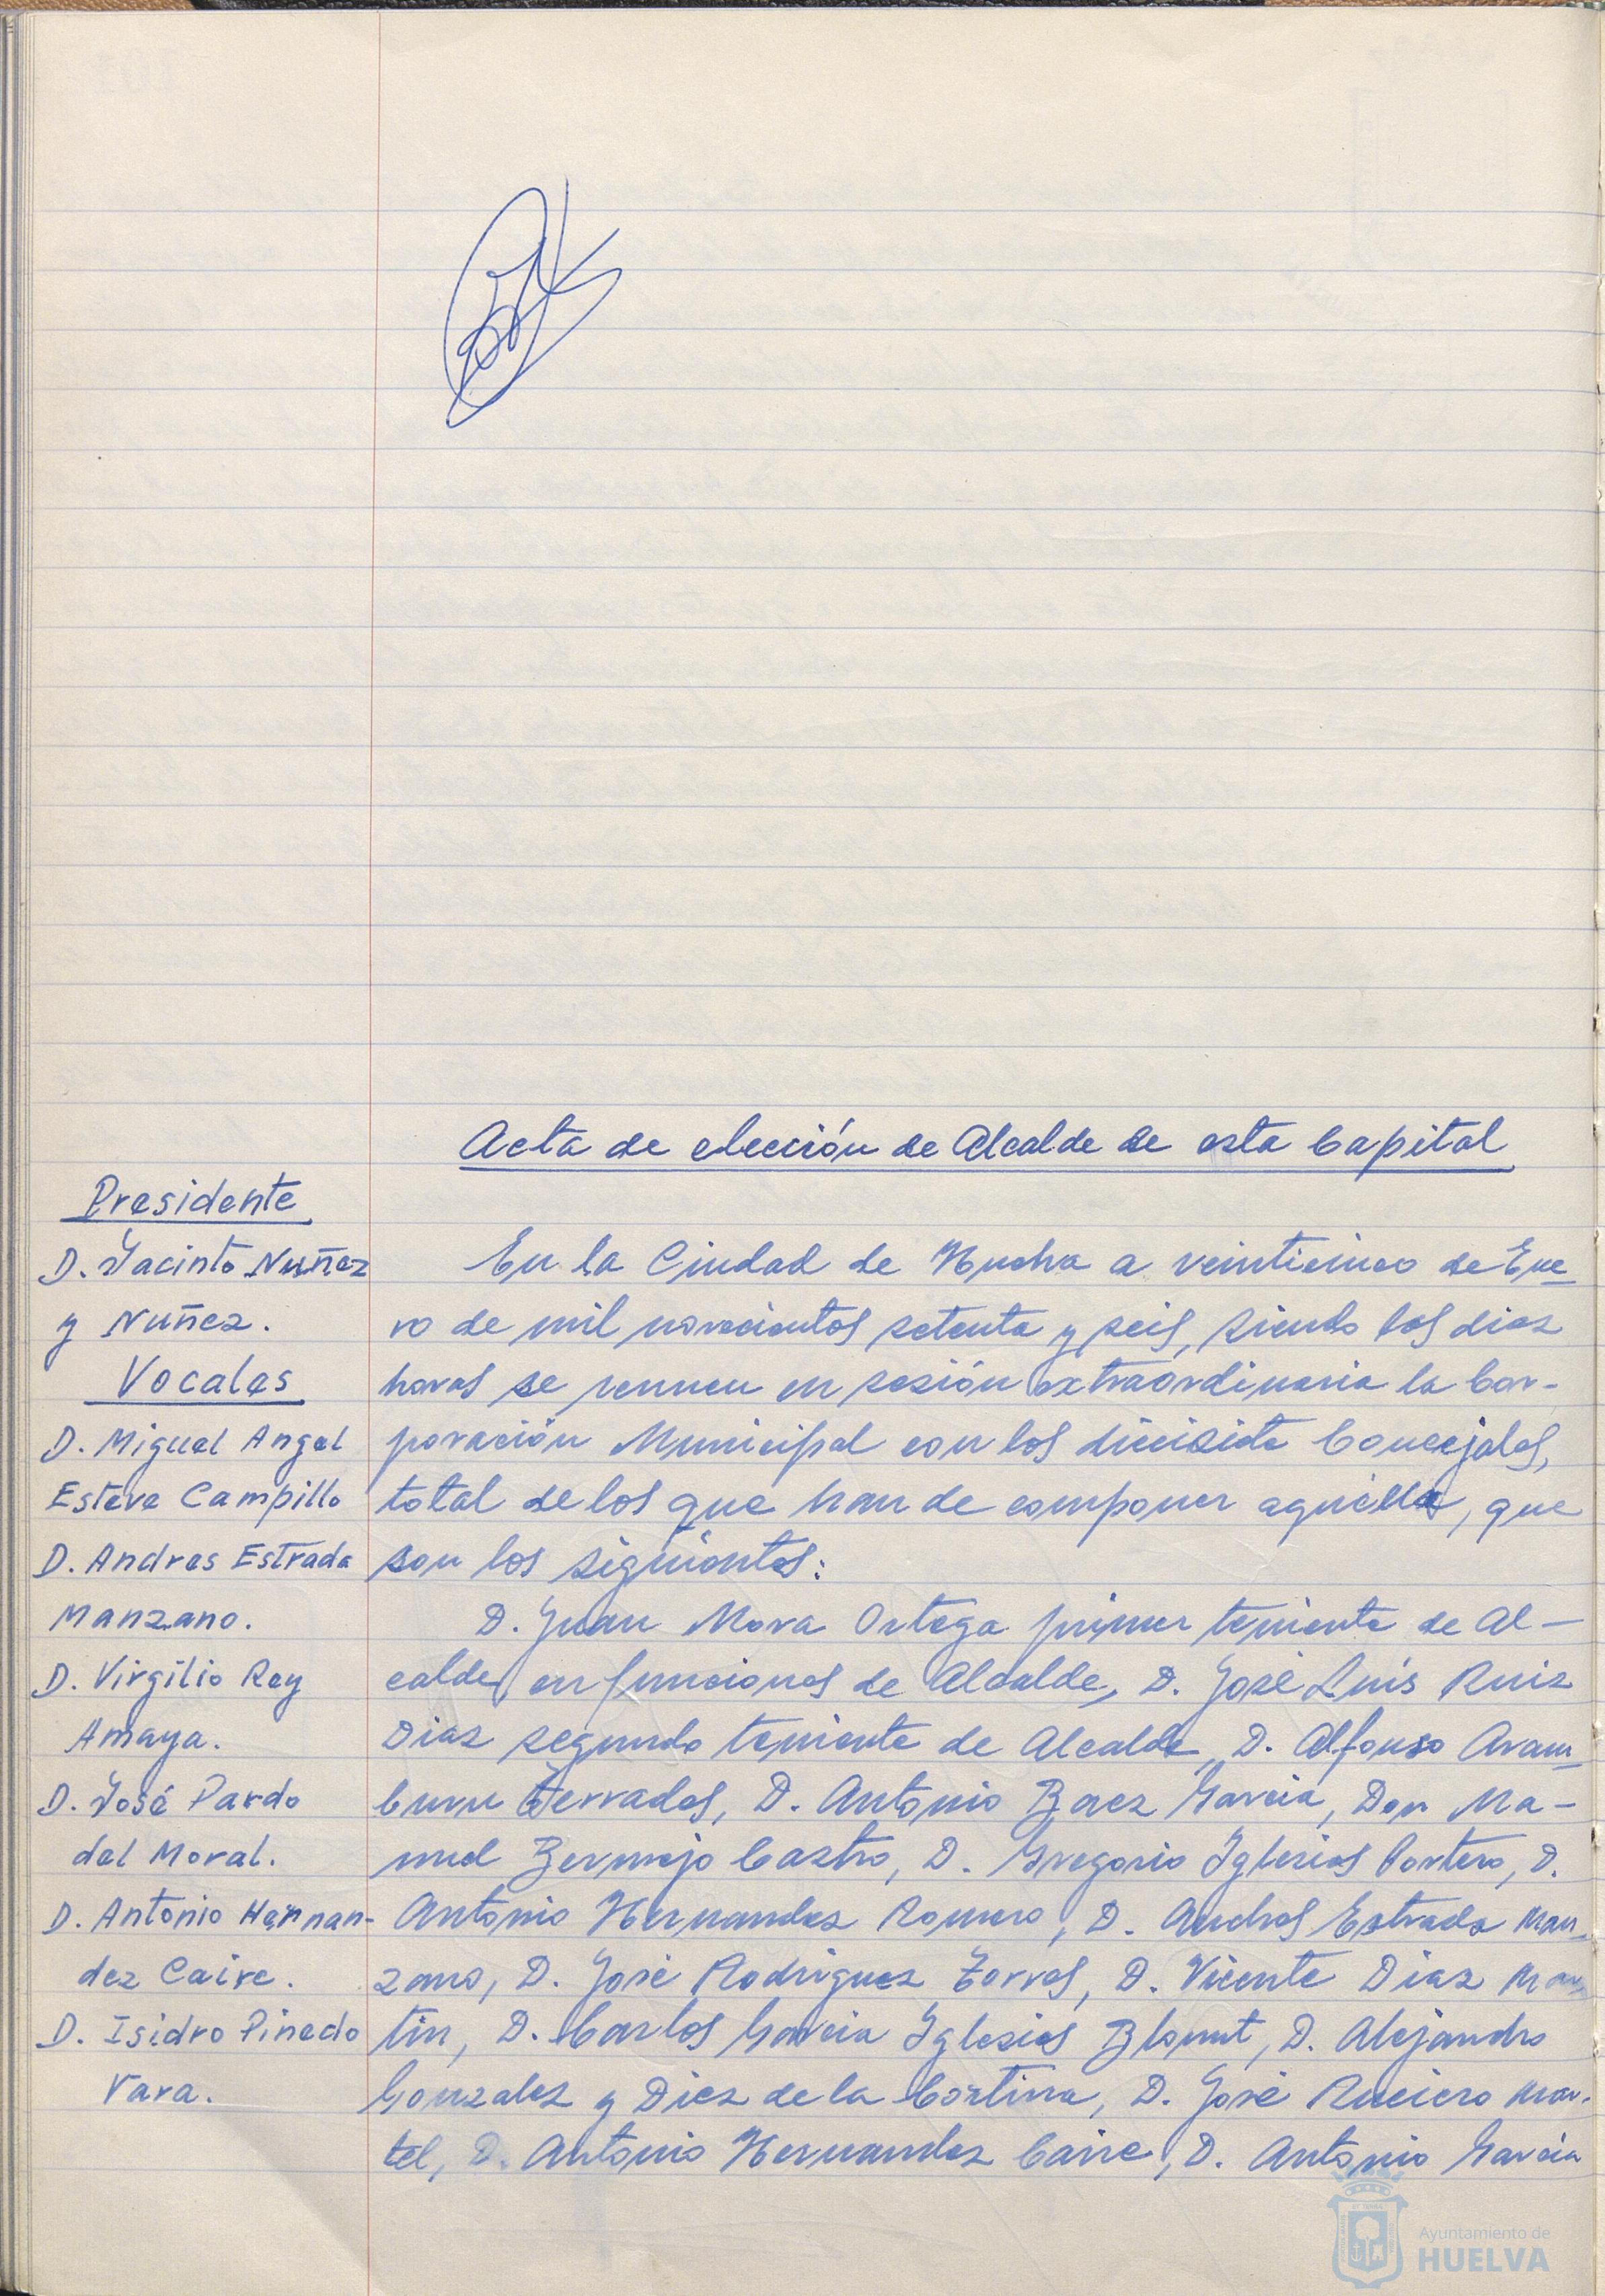 Acta de elección de Alcalde de esta Capital
Presidente
D. Jacinto Nuñez
y Nuñez.
Vocales
D. Miguel Angel
Esteve Campillo
D. Andres Estrada
Manzano.
D. Virgilio Rey
Amaya.
D. José Pardo
del Moral.
D. Antonio Hernan-
dez Caire.
D. Isidro Pinedo
Vara.
En la Ciudad de Huelva a veinticinco de Ene-
ro de mil novecientos setenta y seis, siendo las diez
horas se reunen en sesión extraordinaria la Cor-
poración Municipal con los diecisiete Concejales,
total de los que han de componer aquella, que
son los siguientes:
D. Juan Mora Ortega primer teniente de Al-
calde, en funciones de Alcalde, D. José Luis Ruiz
Diaz segundo teniente de Alcalde, D. Alfonso Aram-
buru Terrades, D. Antonio Baez Garcia, Don Ma-
nuel Bermejo Castro, D. Gregorio Iglesias Portero, D.
Antonio Hernandez Romero, D. Andres Estrada Man-
zano, D. José Rodriguez Torres, D. Vicente Diaz Mar-
tin, D. Carlos Garcia Iglesias Blount, D. Alejandro
Gonzalez y Diez de la Cortina, D. José Ruciero Mar-
tel, D. Antonio Hernandez Caire, D. Antonio Garcia
Ayuntamiento de
HUELVA